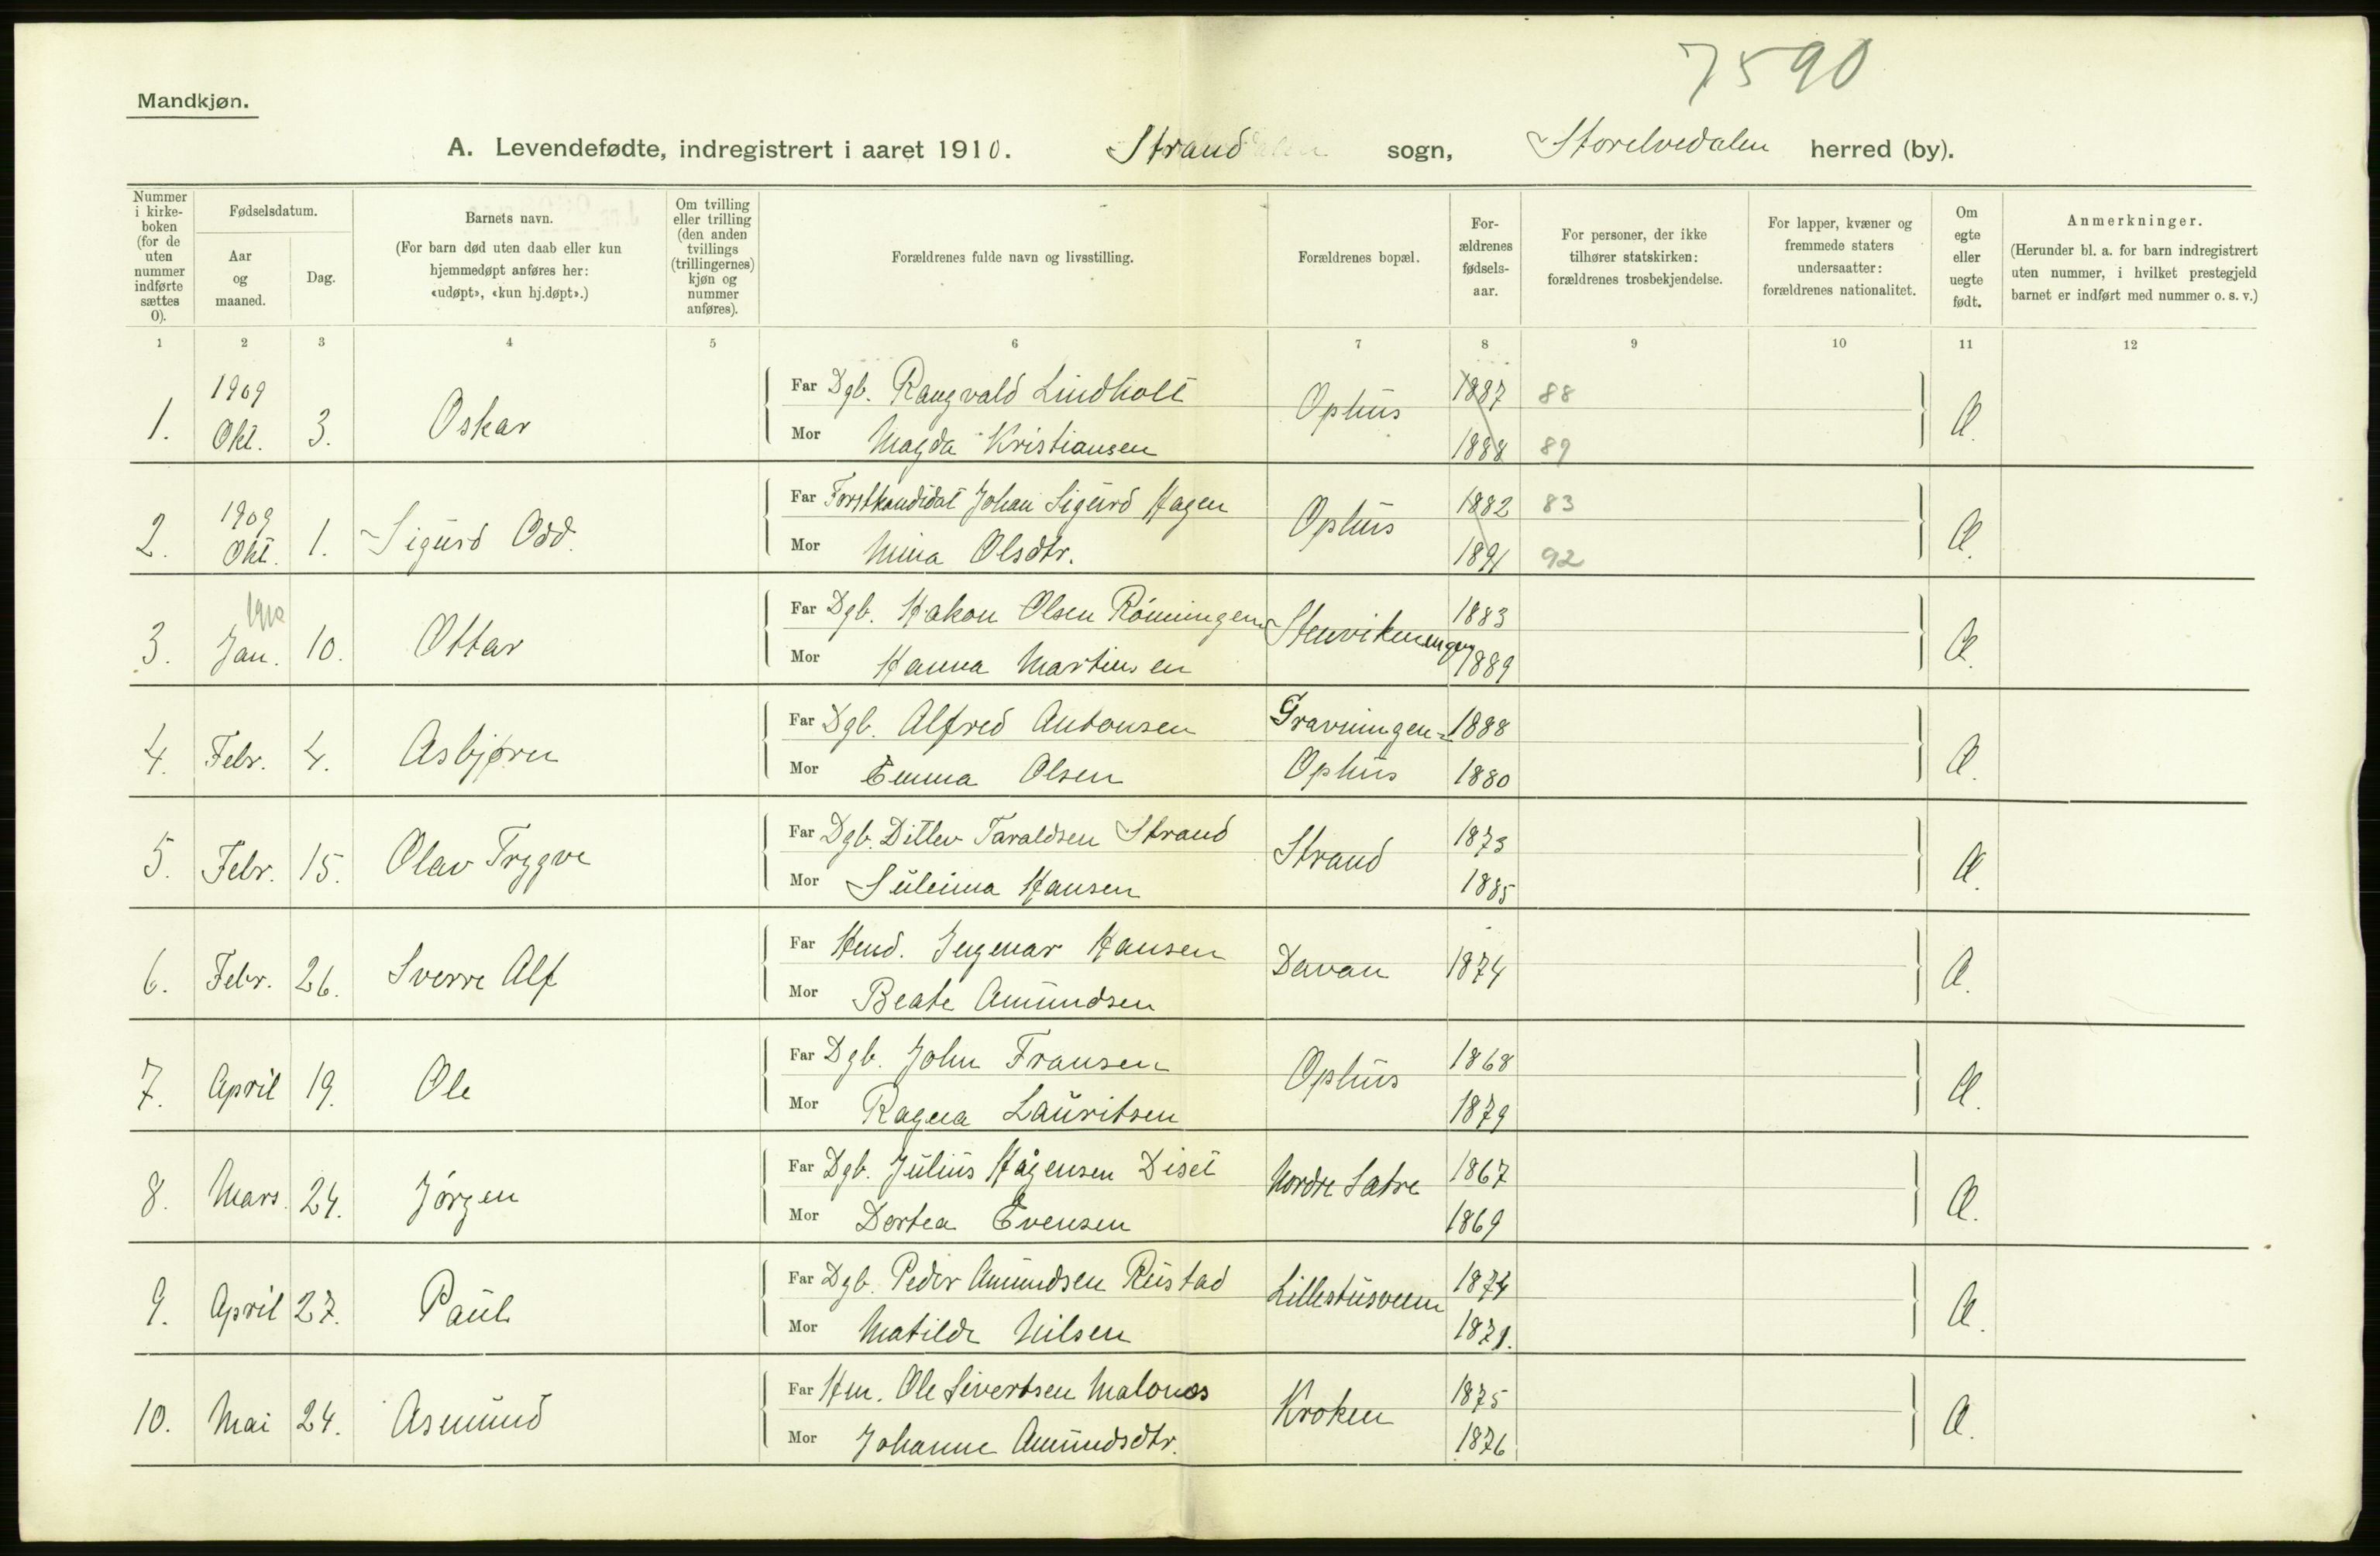 7590
Mandkjøn.
A. Levendefødte, indregistrert i aaret 1910. Strand sogn, Storelvedalen herred (by).
Nummer i kirkeboken (for de uten nummer indførte sættes 0).
Fødselsdatum.
Aar og maaned.
Dag.
Barnets navn.
(For barn død uten daab eller kun hjemmedøpt anføres her: «udøpt», «kun hj.døpt».)
Om tvilling eller trilling (den anden tvillings (trillingernes) kjøn og nummer anføres).
Forældrenes fulde navn og livsstilling.
Forældrenes bopæl.
Forældrenes fødselsaar.
For personer, der ikke tilhører statskirken: forældrenes trosbekjendelse.
For lapper, kvæner og fremmede staters undersaatter: forældrenes nationalitet.
Om egte eller uegte født.
Anmerkninger.
(Herunder bl. a. for barn indregistrert uten nummer, i hvilket prestegjeld barnet er indført med nummer o. s. v.)
1 2 3 4 5 6 7 8 9 10 11 12
1. 1909 Okt. 3. Oskar
Far Dgb. Rangvald Lindholt Ophus 1887 88
Mor Magda Kristiansen 1888 89 Æ.
2. 1909 Okt. 1. Sigurd Odd.
Far Forstkandidat Johan Sigurd Hagen Ophus 1882 83
Mor Mina Olsdtr. 1891 92 Æ.
3. 1910 Jan. 10. Ottar
Far Dgb. Hakon Olsen Rönningen 1883
Mor Hanna Martinsen 1889 Æ.
4. Febr. 4. Asbjørn
Far Dgb. Alfred Antonsen Gravningen- 1888
Mor Emma Olsen Ophus 1880 Æ.
5. Febr. 15. Olav Trygve
Far Dgb. Ditlev Taraldsen Strand Strand 1873
Mor Suleima Hansen 1885 Æ.
6. Febr. 26. Sverre Alf
Far Hmd. Ingemar Hansen Davan 1874
Mor Beate Amundsen Æ.
7. April 19. Ole
Far Dgb. John Fransen Ophus 1868
Mor Ragna Lauritsen 1879 Æ.
8. Mars. 24. Jörgen
Far Dgb. Julius Hågensen Diset Nordre Sætre 1867
Mor Dortea Evensen 1869 Æ.
9. April 27. Paul
Far Dgb. Peder Amundsen Rustad Lillestusveen 1874
Mor Matilde Nilsen 1871. Æ.
10. Mai 24. Asmund
Far Hm. Ole Sivertsen Malonæs Kroken 1875
Mor Johanne Amundsdtr. 1876 Æ.